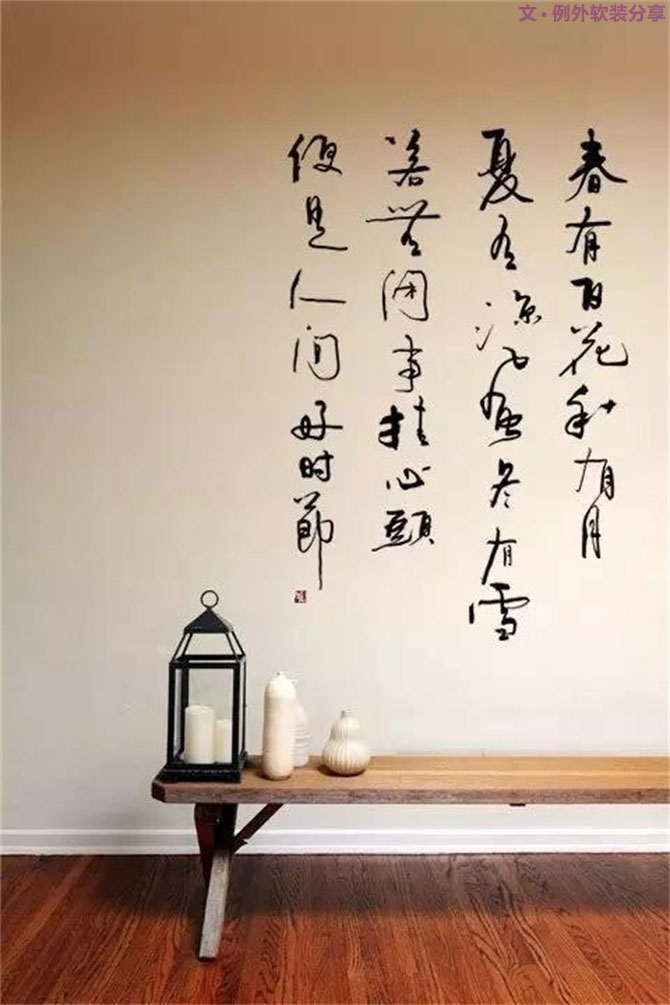 文·例外软装分享
春有百花秋有月
夏有凉風冬有雪
若無闲事挂心頭
便是人间好时節